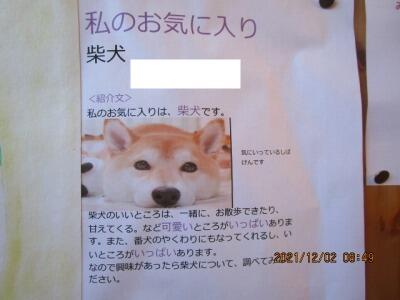 私のお気に入り
柴犬
＜紹介文＞
私のお気に入りは、柴犬です。
気にいっているしば
けんです
柴犬のいいところは、一緒に、お散歩できたり、
甘えてくる。など可愛いところがいっぱいありま
す。また、番犬のやくわりにもなってくれるし、い
いところがいっぱいあります。
なので興味があったら柴犬について、調べてみ
ださい。
2021/12/02 09:49